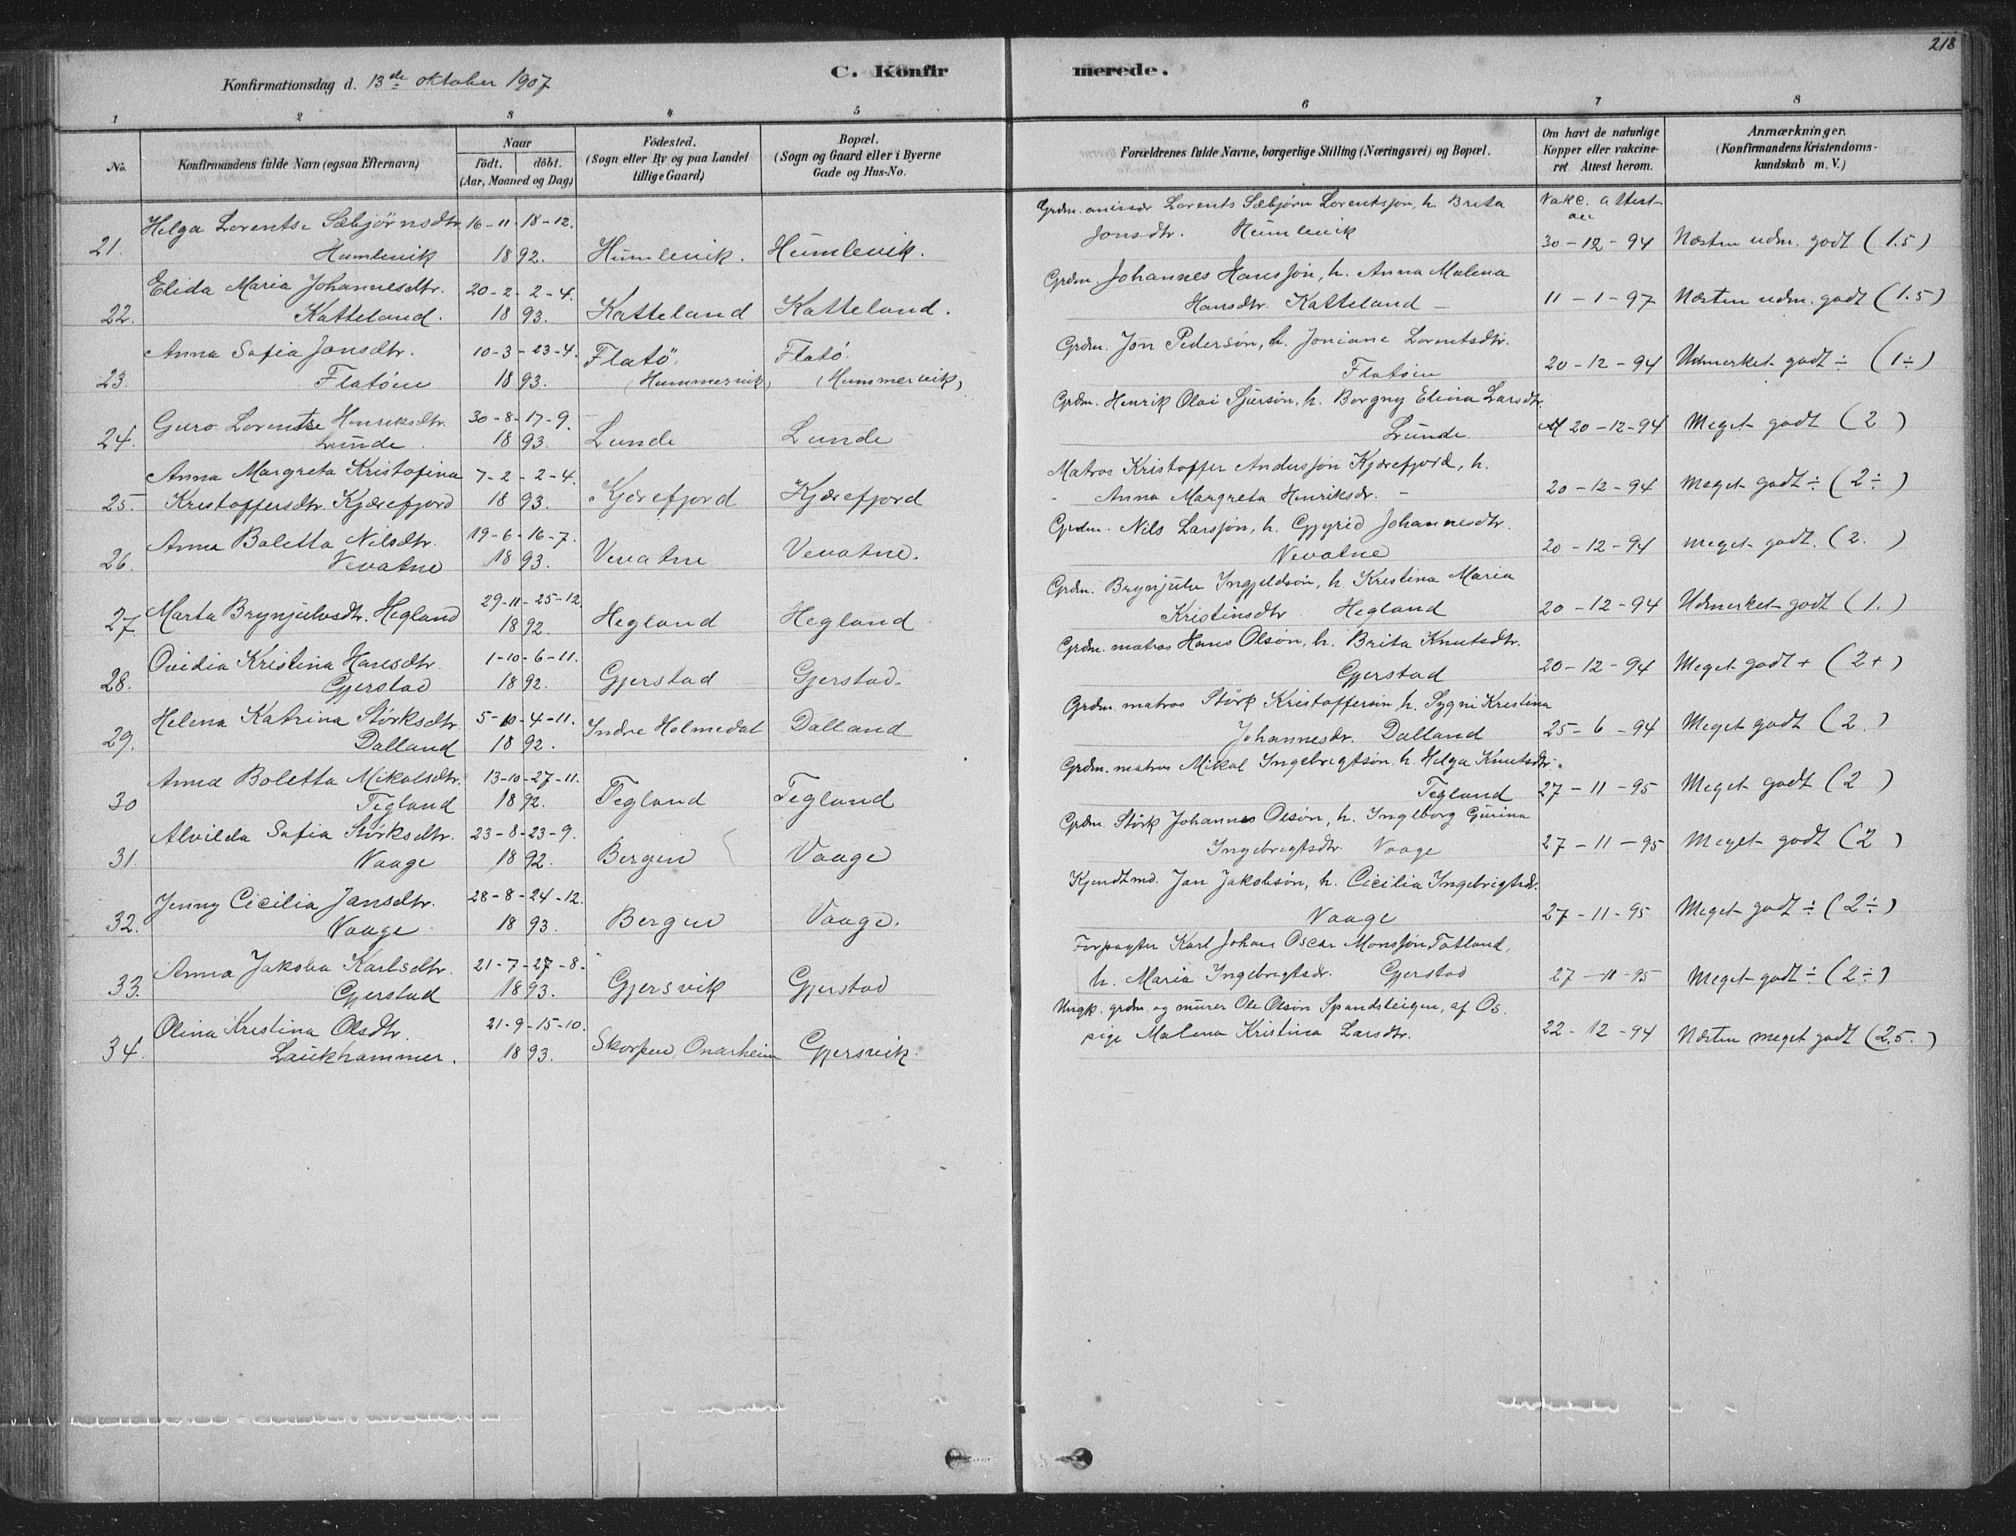 218
Konfirmationsdag d. 13de oktober 1907
C. Konfirmerede.
1 2 3 4 5 6 7 8
No.
Konfirmandens fulde Navn (ogsaa Efternavn)
Naar
födt. döbt.
(Aar, Maaned og Dag)
Födested.
(Sogn eller By og paa Landet
tillige Gaard)
Bopæl.
(Sogn og Gaard eller i Byerne
Gade og Hus-No.
Forældrenes fulde Navne, borgerlige Stilling (Næringsvei) og Bopæl.
Om havt de naturlige
Kopper eller vakcine-
ret Attest herom.
Anmærkninger.
(Konfirmandens Kristendoms-
kundskab m. V.)
Helga Lorentse Sæbjørnsdtr. 16-11-18-12. Grdm. Lorents Sæbjørn Lorentssön, h. Brita Vakc. attest
21. Humlevik 1892. Humlevik. Humlevik. Jonsdtr. Humlevik 30-12-94 Næsten udm. godt (1.5)
Elida Maria Johannesdtr. 20-2-2-4. Grdm. Johannes Hanssön, h. Anna Malena
22. Katteland. 1893. Katteland Katteland. Hansdtr. Katteland 11-1-97 Næsten udm. godt (1.5)
Anna Sofia Jonsdtr. 10-3-23-4. Flatö Flatö Grdm. Jon Pedersön, h. Joniane Lorentsdtr.
23. Flatöen 1893. (Hummervik) (Hummervik) Flatöen 20-12-94 Udmerket godt ÷ (1÷)
Guro Lorentse Henriksdtr. 30-8-17-9. Grdm. Henrik Olai Sjursön, h. Borgny Elina Larsdtr.
24. Lunde. 1893. Lunde Lunde Lunde 20-12-94 Meget godt (2)
Anna Margreta Kristofina 7-2-2-4. Matros Kristoffer Anderssön Kjærefjord, h.
25. Kristoffersdtr. Kjærefjord 1893. Kjærefjord Kjærefjord Anna Margreta Henriksdr. 20-12-94 Meget godt ÷ (2÷)
Anna Boletta Nilsdtr. 19-6-16-7. Grdm. Nils Larssön, h. Gjyrid Johannesdtr.
26. Vevatne 1893. Vevatne Vevatne. Vevatne 20-12-94 Meget godt. (2.)
Marta Brynjulvsdtr. Hegland 29-11-25-12 Grdm. Brynjulv Ingjeldsön, h. Kristina Maria
27. 1892. Hegland Hegland Kristinsdtr. Hegland 20-12-94 Udmerket godt (1.)
Ovidia Kristina Hansdtr. 1-10-6-11. Grdm. matros Hans Olsön, h. Brita Knutsdtr.
28. Gjerstad 1892. Gjerstad Gjerstad Gjerstad 20-12-94 Meget godt + (2+)
Helena Katrina Störksdtr. 5-10-4-11. Grdm. matros Störk Kristoffersön, h. Sygni Kristina
29. Dalland 1892. Indre Holmedal Dalland Johannesdr. Dalland 25-6-94 Meget godt (2.)
Anna Boletta Mikalsdtr. 13-10-27-11. Grdm. matros Mikal Ingebrigtsön, h. Helga Knutsdtr.
30 Tegland 1892. Tegland Tegland Tegland 27-11-95 Meget godt (2)
Alvilda Sofia Störksdtr. 23-8-23-9. Grdm. Störk Johannes Olsön, h. Ingeborg Gurina
31. Vaage 1892. Bergen Vaage Ingebrigtsdtr. Vaage 27-11-95 Meget godt (2)
Jenny Cicilia Jansdtr. 28-8-24-12. Kjendtmd. Jan Jakobsön, h. Cicilia Ingebrigtsdr.
32. Vaage. 1893. Bergen Vaage. Vaage 27-11-95 Meget godt ÷ (2÷)
Anna Jakoba Karlsdtr. 21-7-27-8. Forpagter Karl Johan Oscar Monssön Tatland,
33. Gjerstad 1893. Gjersvik Gjerstad h. Maria Ingebrigtsdr. Gjerstad 27-11-95 Meget godt ÷ (2÷)
Olina Kristina Olsdtr. 21-9-15-10. Ungk. grdm. og murer Ole Olsön Spandsteigen, af Os.
34. Laukhammer. 1893. Skorpen, Onarheim Gjersvik. pige Malena Kristina Larsdtr. 22-12-94 Næsten meget godt (2.5.)